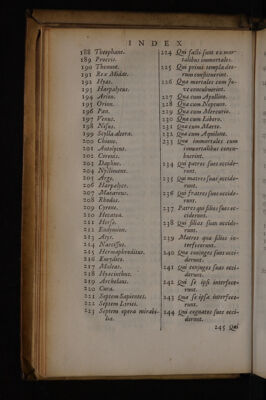 INDEX
188 Theophane.
189 Procris.
190 Theonoe.
191 Rex Midas.
192 Hyas.
193 Harpalycus.
194 Arion.
195 Orion.
196 Pan.
197 Venus.
198 Nisus.
199 Scylla altera.
200 Chione.
201 Autolycus.
202 Coronis.
203 Daphne.
204 Nyctimene.
205 Arge.
206 Harpalyce.
207 Macareus.
208 Rhodos.
209 Cyrene.
210 Hecatea.
211 Herse.
212 Endymion.
213 Atys.
214 Narcissus.
215 Hermaphroditus.
216 Eurydice.
217 Meleas.
218 Hyacinthus.
219 Archelaus.
220 Cura.
221 Septem Sapientes.
222 Septem Lyrici.
223 Septem opera mirabi-
lia.
224 Qui facti sunt ex mor-
talibus immortales.
225 Qui primi templa deo-
rum constituerint.
226 Quæ mortales cum Jo-
ve concubuerint.
227 Qua cum Apolline.
228 Qua cum Neptuno.
229 Qua cum Mercurio.
230 Qua cum Libero.
231 Qua cum Marte.
232 Qua cum Aquilone.
233 Qua immortales cum
immortalibus concu-
buerint.
234 Qui patres suos occide-
runt.
235 Qui matres suas occide-
runt.
236 Qui fratres suos occide-
runt.
237 Patres qui filios suos oc-
ciderunt.
238 Qui filias suas occide-
runt.
239 Matres quæ filios in-
terfecerunt.
240 Quæ conjuges suos occi-
derunt.
241 Qui conjuges suas occi-
derunt.
242 Qui se ipsi interfece-
runt.
243 Quæ se ipsæ interfece-
runt.
244 Qui cognatos suos occi-
derunt.
245 Qui